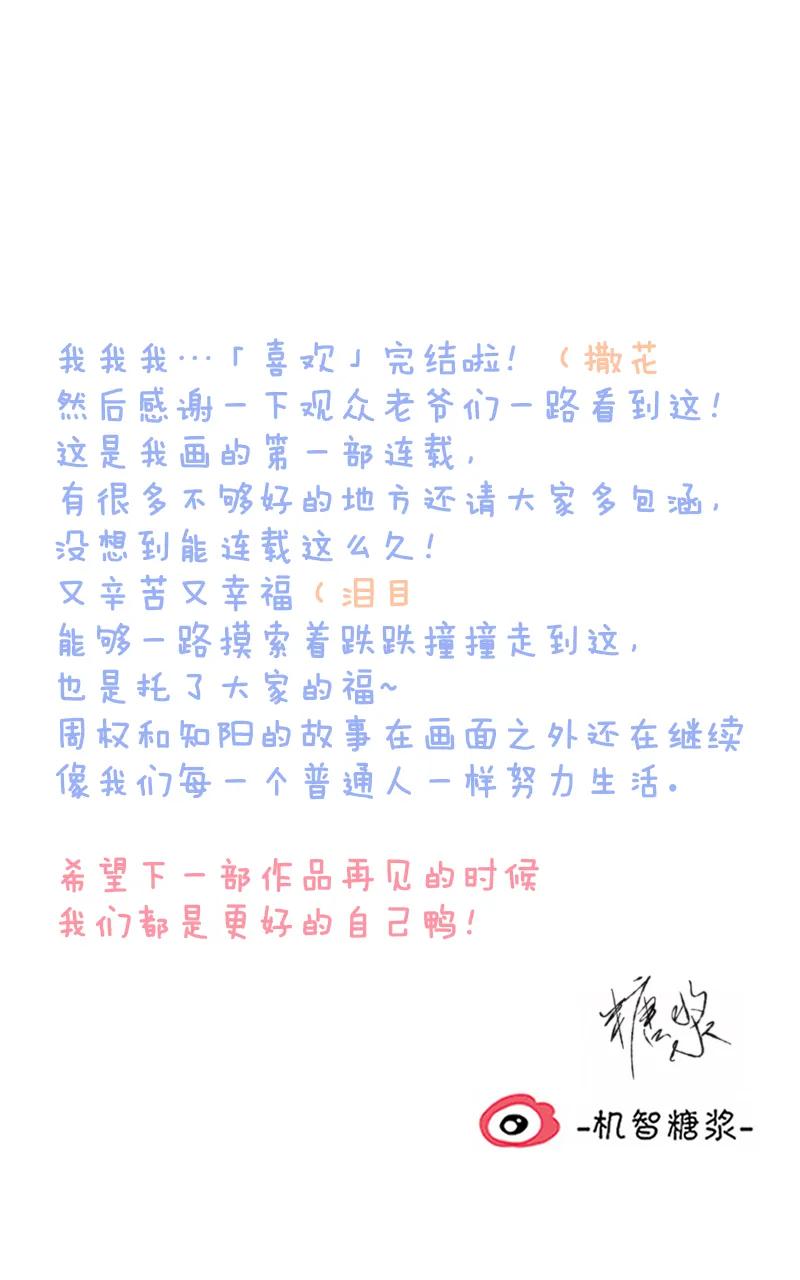 我我我…「喜欢」完结啦！（撒花
然后感谢一下观众老爷们一路看到这！
这是我画的第一部连载，
有很多不够好的地方还请大家多包涵，
没想到能连载这么久！
又辛苦又幸福（泪目
能够一路摸索着跌跌撞撞走到这，
也是托了大家的福~
周权和知阳的故事在画面之外还在继续
像我们每一个普通人一样努力生活。
希望下一部作品再见的时候
我们都是更好的自己鸭！
糖浆
-机智糖浆-